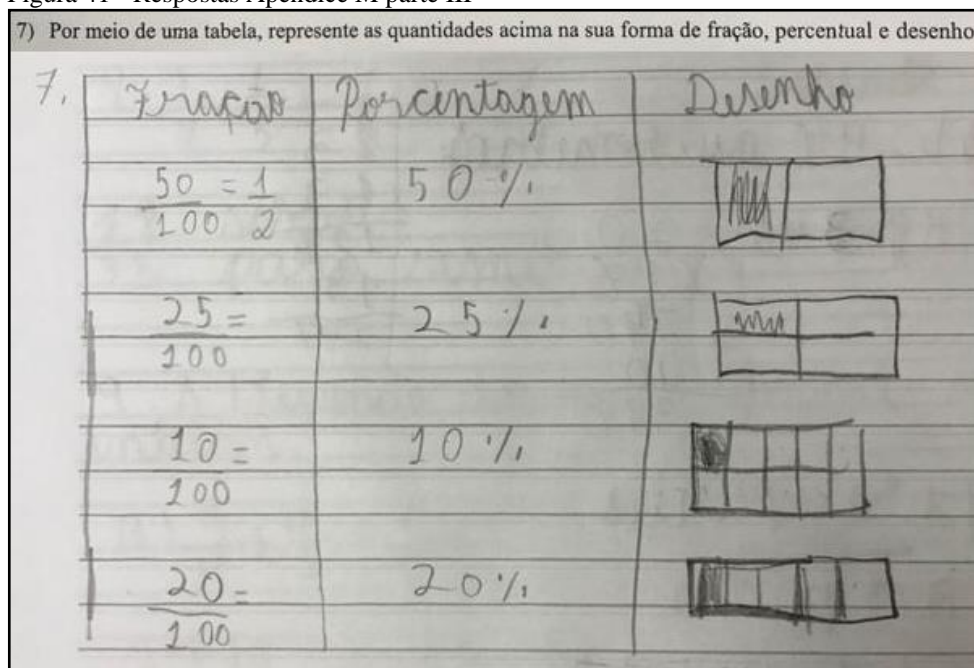 Figura 41 - Respostas Apêndice M parte III
7) Por meio de uma tabela, represente as quantidades acima na sua forma de fração, percentual e desenho
7. Fração Porcentagem Desenho
50 = 1 50 %
100 2
25 = 25 %
100
10 = 10 %
100
20 = 20 %
100